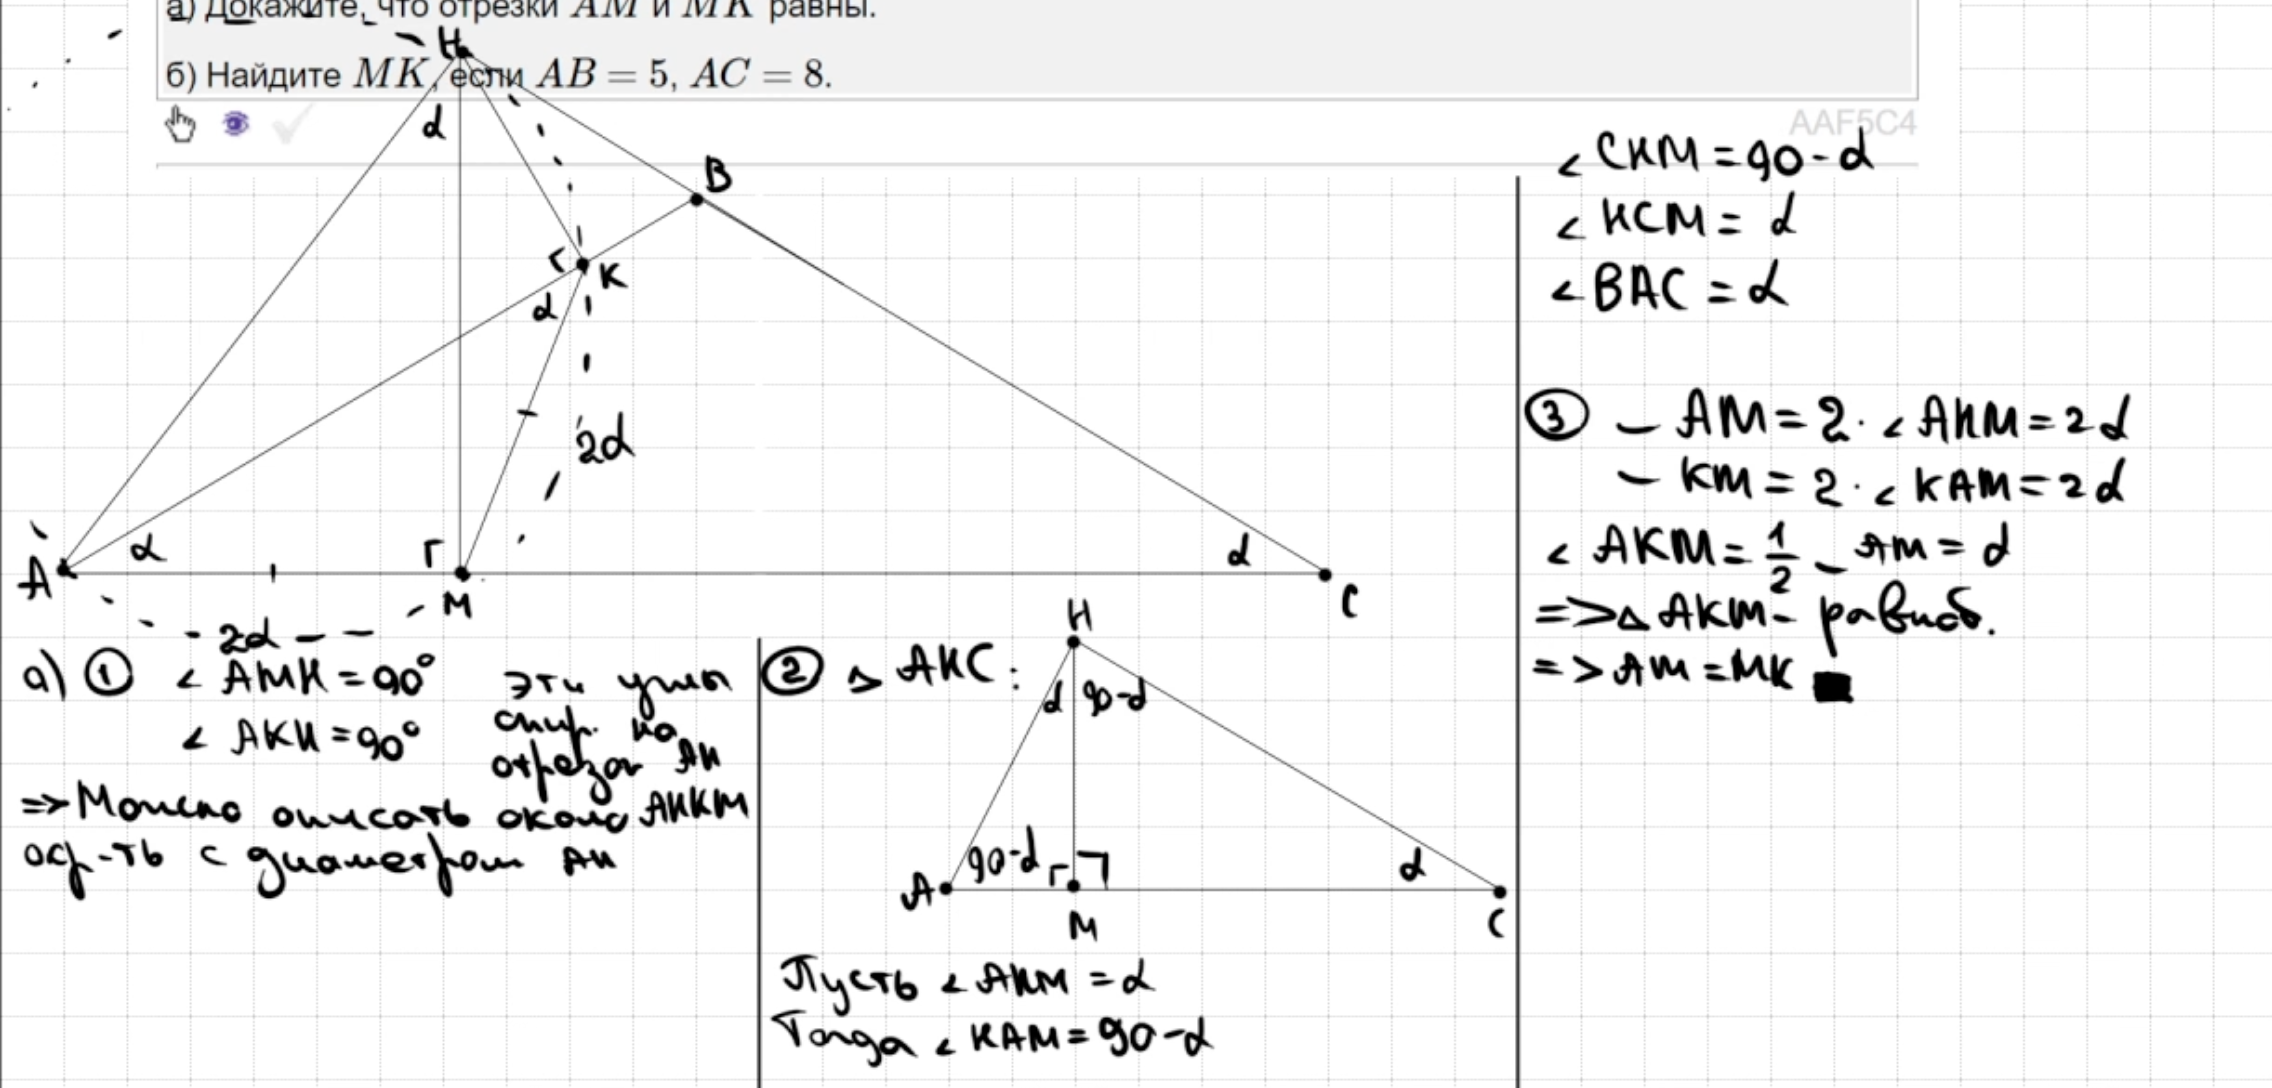 а) Докажите, что отрезки AM и MK равны.
б) Найдите MK, если AB = 5, AC = 8.
AAF5C4
H
α
B
K
α
2α
A
α
M
α
C
2α
а) ① ∠AMH = 90°
∠AKH = 90°
эти углы
опир. на
отрезок AH
=> Можно описать около AHKM
окр-ть с диаметром AH
② △AHC:
H
α 90-α
90-α
α
A
M
C
Пусть ∠AHM = α
Тогда ∠HAM = 90-α
∠CHM = 90-α
∠HCM = α
∠BAC = α
③ ‿AM = 2·∠AHM = 2α
‿KM = 2·∠KAM = 2α
∠AKM = 1/2 ‿AM = α
=> △AKM - равноб.
=> AM = MK ■